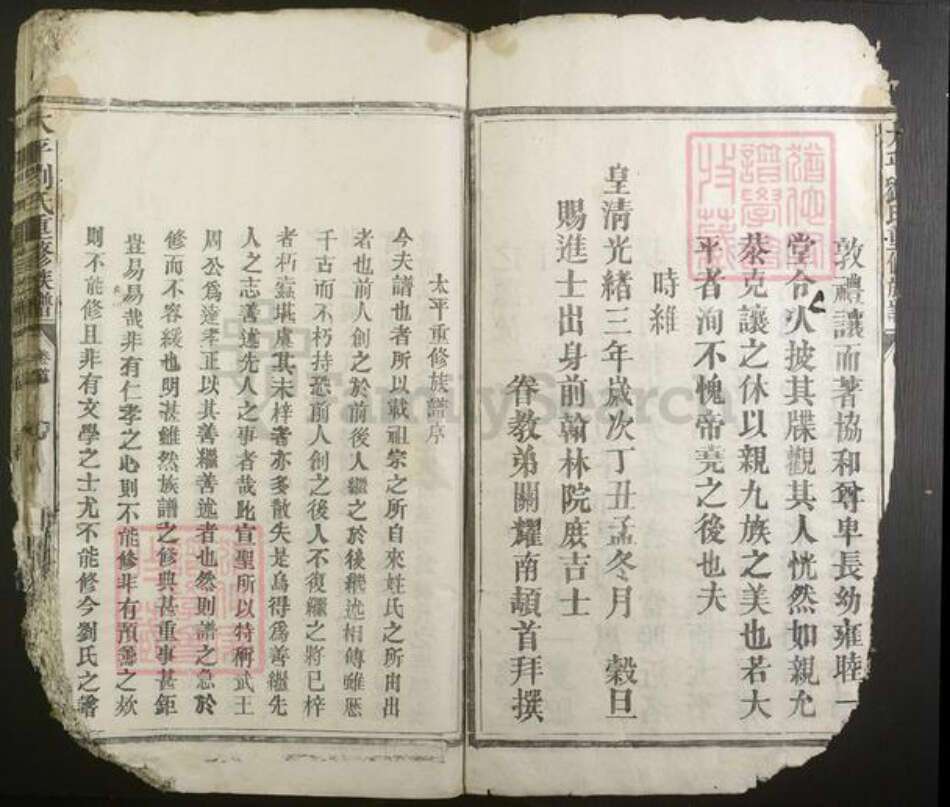 敦禮讓而著協和尊卑長幼雍睦一
堂令人披其牒觀其人恍然如親允
恭克讓之休以親九族之美也若大
平者洵不愧帝堯之後也夫
時維
皇清光緒三年歲次丁丑孟冬月 穀旦
賜進士出身前翰林院庶吉士
眷教弟關耀南頓首拜撰
太平重修族譜序
今夫譜也者所以載祖宗之所自來姓氏之所由出
者也前人創之於前後人繼之於後繼述相傳雖歷
千古而不朽持恐前人創之後人不復繼之將已梓
者朽蠹堪虞其未梓者亦多散失是烏得為善繼先
人之志善述先人之事者哉此宣聖所以特稱武王
周公爲達孝正以其善繼善述者也然則譜之急於
修而不容緩也明甚雖然族譜之修典甚重事甚鉅
豈易易哉非有仁孝之心則不能修非有預籌之欵
則不能修且非有文學之士尤不能修今劉氏之譜
太平劉氏重修族譜
卷首
FamilySearch